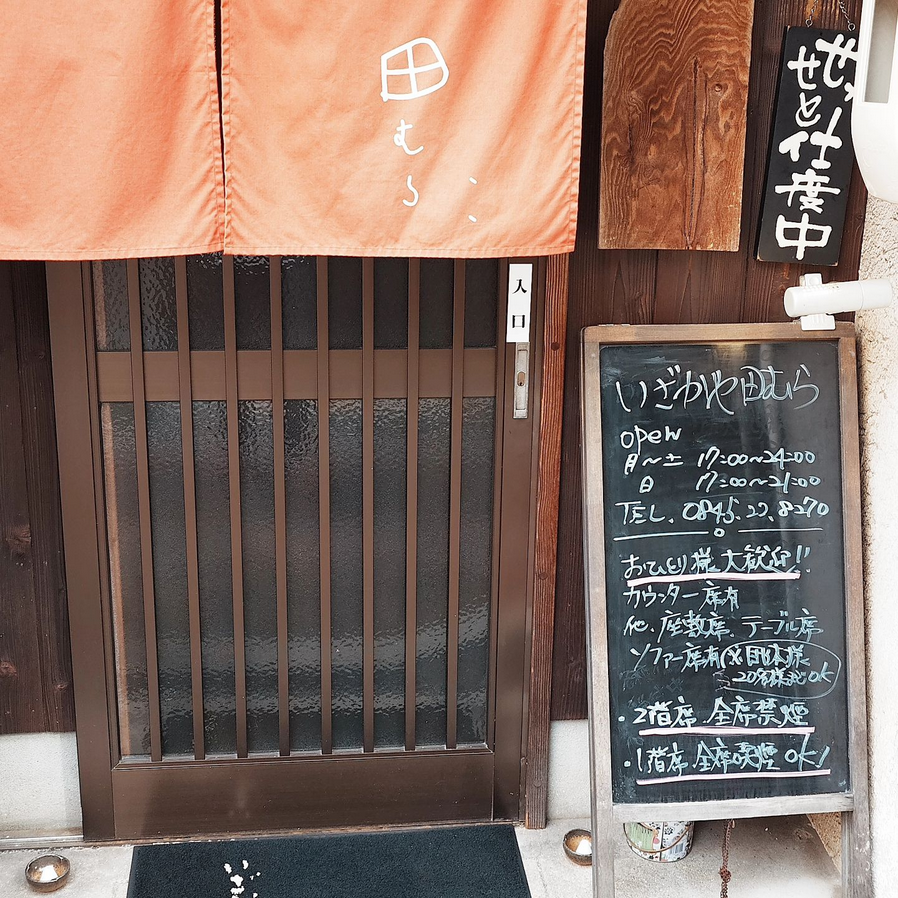 田むら
入口
せっせと仕度中
いざかや田むら
open
月〜土 17:00〜24:00
日 17:00〜21:00
TEL. 0845.22.8270
おひとり様大歓迎!!
カウンター席有
他、座敷席、テーブル席
ソファー席有(※団体様
20名様迄OK
・2階席 全席禁煙
・1階席 全席喫煙OK!